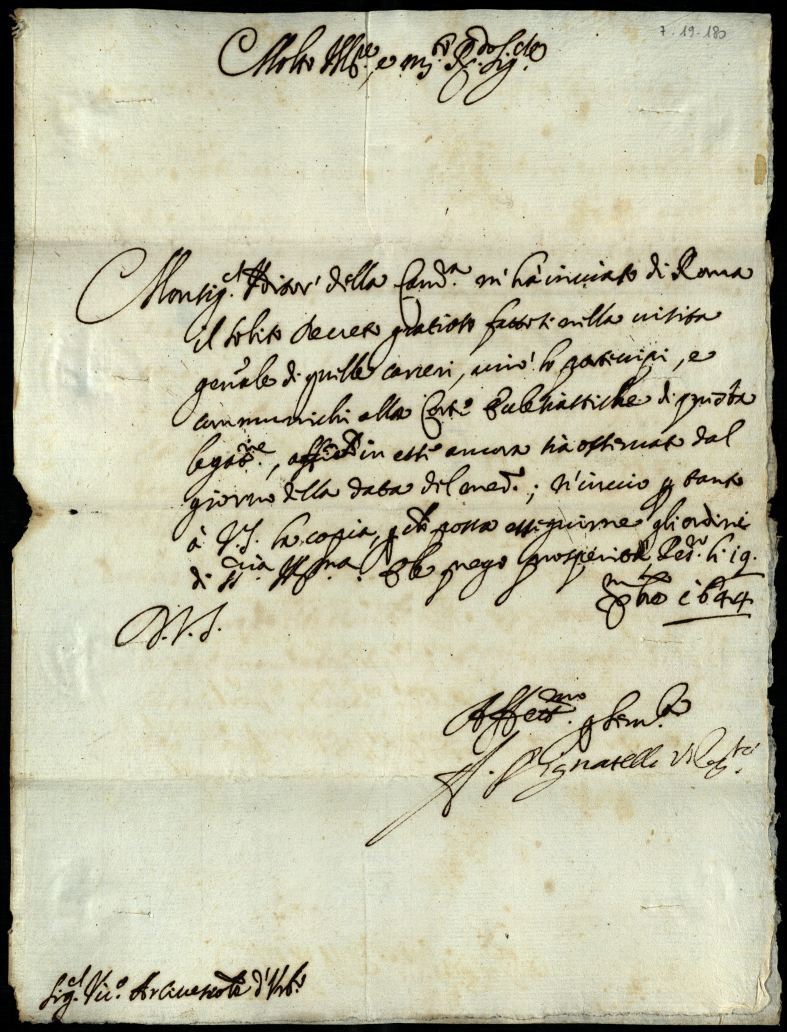 7-19-180
Molto Ill.re, e m.to R.do Sig.re
Monsig.r Auditor' della Cam.a m'hà inuiato di Roma
il solito decreto gratioso fattosi nella uisita
gen'ale di quelle carceri, acciò lo participi, e
communichi alle Corti Ecclesiastiche di questa
legat.ne, aff.che in esse ancora sia osseruato dal
giorno della data del med.o; n'inuio p tanto
à V.S. la copia, p che possa esseguirne gli ordini
di S.S.ria Ill.ma. E le prego prosperità. Pes.o li 19.
Xmbre 1644
D.V.S.
Affett.mo p seru.la
A. Pignatelli V.Leg.to
Sig.r Vic.o Arciuescou.le d'Urb.o